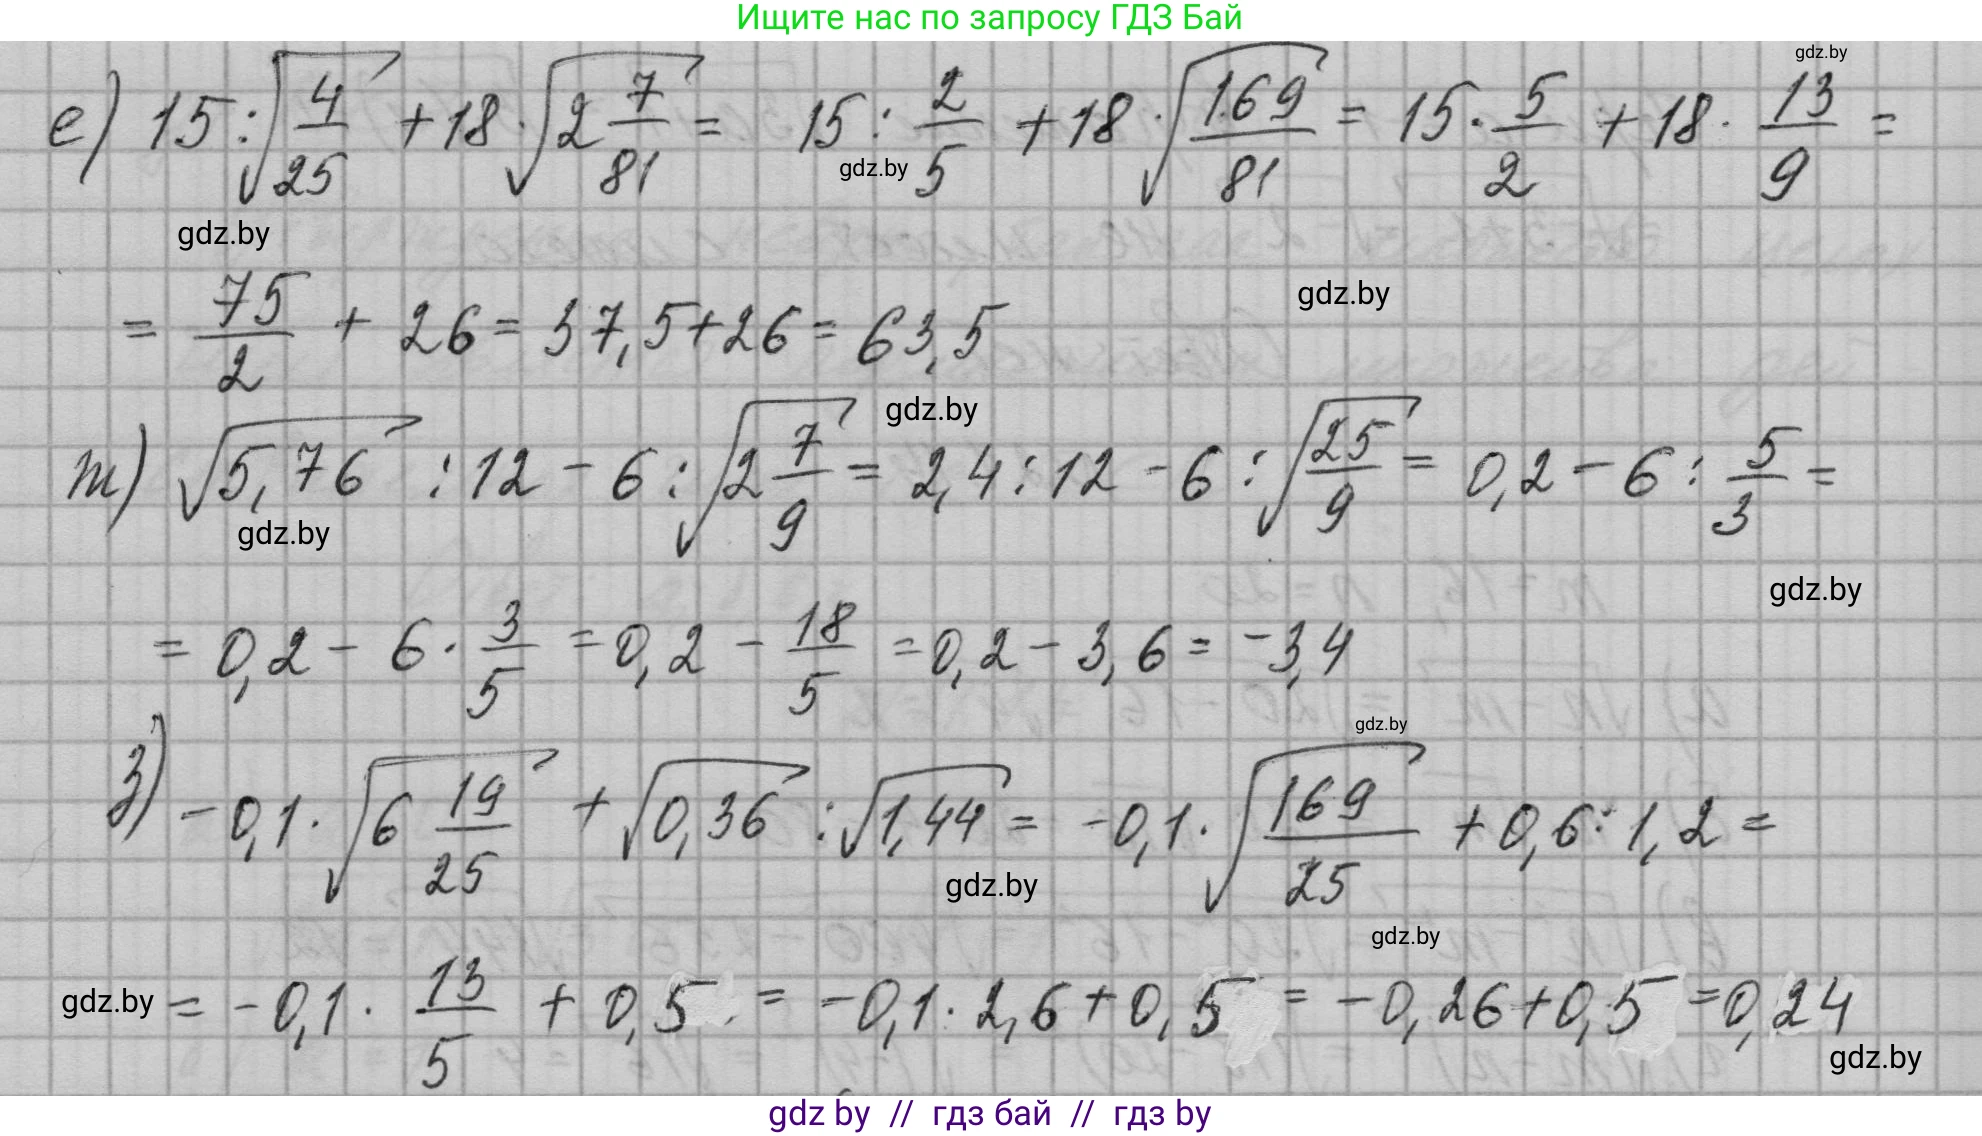 Ищите нас по запросу ГДЗ Бай
gdz.by
е) 15:√(4/25) + 18·√(2 7/81) = 15 : 2/5 + 18·√(169/81) = 15 · 5/2 + 18 · 13/9 =
gdz.by
gdz.by
gdz.by
= 75/2 + 26 = 37,5 + 26 = 63,5
gdz.by
ж) √5,76 : 12 − 6 : √(2 7/9) = 2,4 : 12 − 6 : √(25/9) = 0,2 − 6 : 5/3 =
gdz.by
gdz.by
= 0,2 − 6 · 3/5 = 0,2 − 18/5 = 0,2 − 3,6 = −3,4
gdz.by
з) −0,1 · √(6 19/25) + √0,36 : √1,44 = −0,1 · √(169/25) + 0,6 : 1,2 =
gdz.by
gdz.by
gdz.by = −0,1 · 13/5 + 0,5 = −0,1 · 2,6 + 0,5 = −0,26 + 0,5 = 0,24
gdz.by
gdz by // гдз бай // гдз by